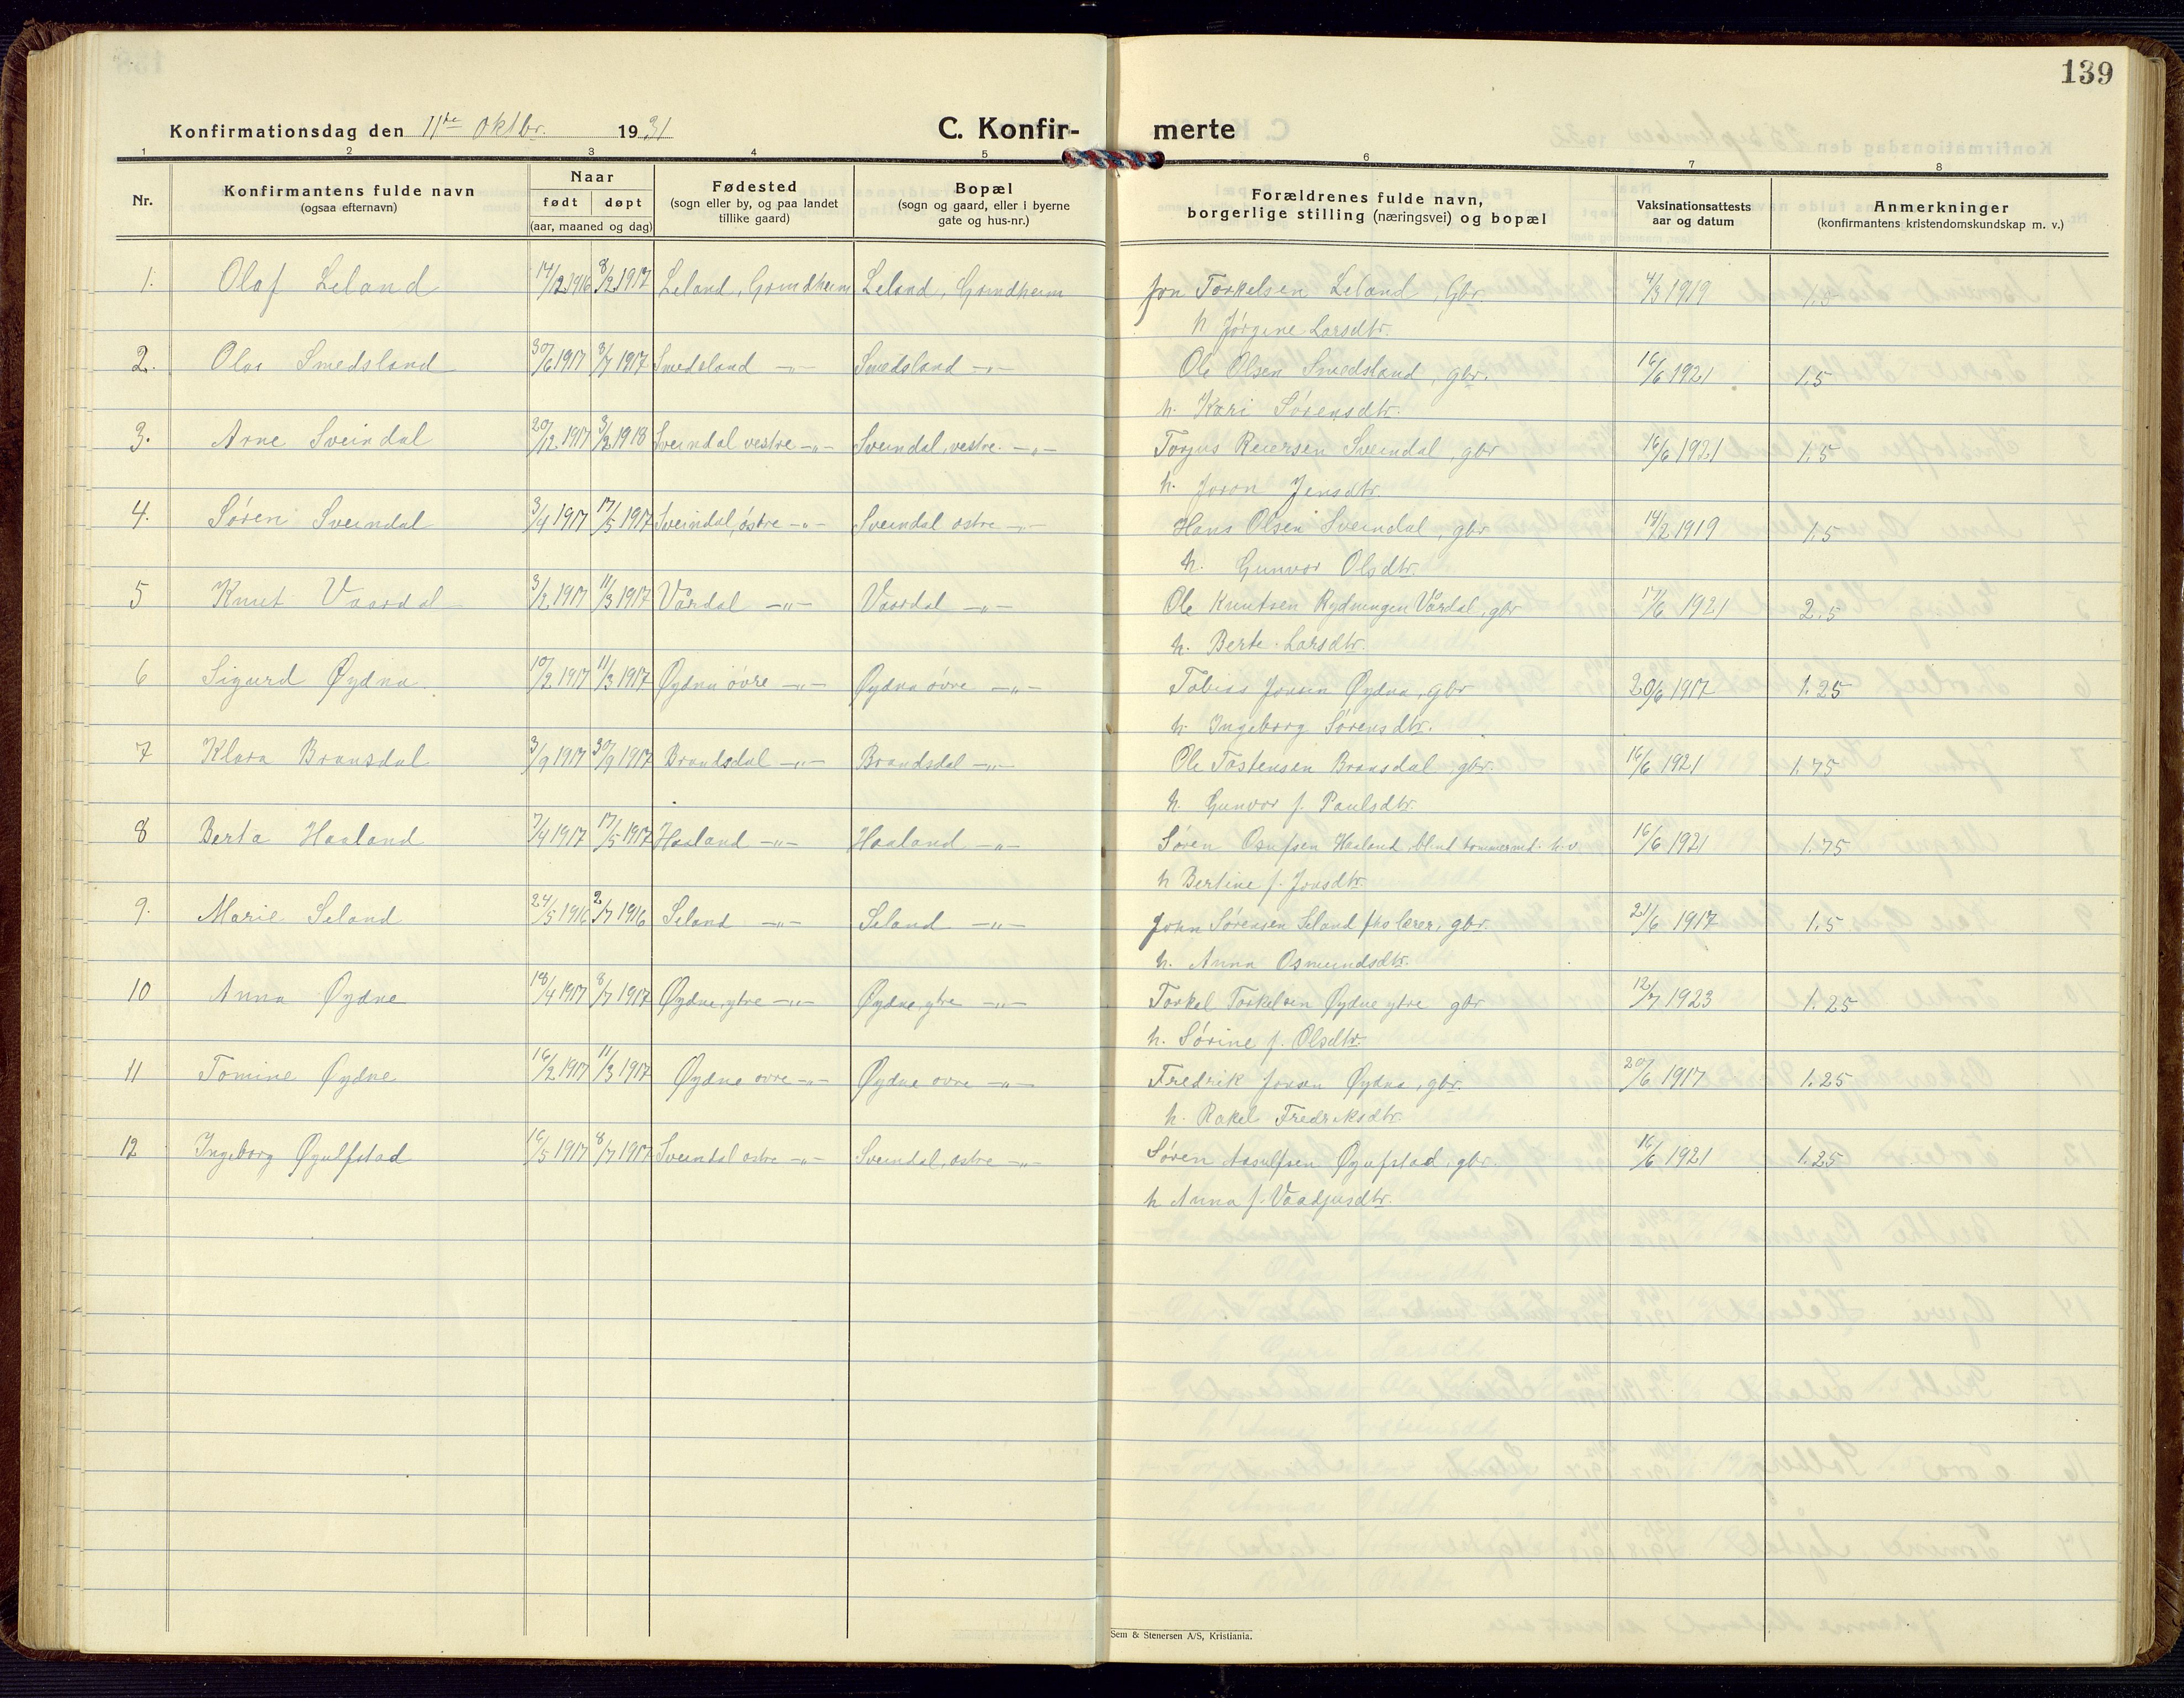 139
Konfirmationsdag den 11te oktbr. 1931
C. Konfir- merte
1 2 3 4 5 6 7 8
Nr.
Konfirmantens fulde navn
(ogsaa efternavn)
Naar
født døpt
(aar, maaned og dag)
Fødested
(sogn eller by, og paa landet
tillike gaard)
Bopæl
(sogn og gaard, eller i byerne
gate og hus-nr.)
Forældrenes fulde navn,
borgerlige stilling (næringsvei) og bopæl
Vaksinationsattests
aar og datum
Anmerkninger
(konfirmantens kristendomskundskap m. v.)
1. Olaf Leland 14/12 1916 8/2 1917 Leland, Grindheim Leland, Grindheim Jon Torkelsen Leland, gbr. 4/3 1919 1.5
h Jørgine Larsdtr.
2. Olav Smedsland 30/6 1917 8/7 1917 Smedsland -"- Smedsland -"- Ole Olsen Smedsland, gbr. 16/6 1921 1.5
h. Kari Sørensdtr.
3. Arne Sveindal 20/12 1917 3/2 1918 Sveindal vestre -"- Sveindal, vestre. -"- Torjus Reiersen Sveindal, gbr 16/6 1921 1.5
h. Joron Jensdtr.
4. Søren Sveindal 3/4 1917 17/5 1917 Sveindal, østre -"- Sveindal ostre -"- Hans Olsen Sveindal, gbr 14/2 1919 1.5
h. Gunvor Olsdtr.
5 Knut Vaardal 3/2 1917 11/3 1917 Vårdal -"- Vaardal -"- Ole Knutsen Rydningen Vårdal, gbr 17/6 1921 2.5
h. Berte Larsdtr.
6 Sigurd Øydna 10/2 1917 11/3 1917 Øydna øvre -"- Øydna øvre -"- Tobias Jonsen Øydna, gbr 20/6 1917 1.25
h. Ingeborg Sørensdtr.
7 Klara Bransdal 3/9 1917 30/9 1917 Brandsdal -"- Brandsdal -"- Ole Tostensen Bransdal gbr. 16/6 1921 1.75
h. Gunvor f. Paulsdtr.
8 Berta Haaland 7/4 1917 17/5 1917 Haaland -"- Haaland -"- Søren Osufsen Haaland, blind tømmermd. h.v. 16/6 1921 1.75
h Bertine f. Jonsdtr.
9. Marie Seland 24/5 1916 2/7 1916 Seland -"- Seland -"- John Sørensen Seland fhs lærer, gbr. 21/6 1917 1.5
h. Anna Osmundsdtr.
10 Anna Øydne 18/4 1917 8/7 1917 Øydne, ytre -"- Øydne, ytre -"- Torkel Torkelsen Øydne ytre gbr 12/7 1923 1.25
h. Sørine f. Olsdtr.
11 Tomine Øydne 16/2 1917 11/3 1917 Øydna ovre -"- Øydna ovre -"- Fredrik Jonsen Øydna, gbr. 20/6 1917 1.25
h. Rakel Fredriksdtr.
12 Ingeborg Øgulfstad 16/5 1917 8/7 1917 Sveindal ostre -"- Sveindal, ostre -"- Søren Aasulfsen Øgufstad, gbr. 16/6 1921 1.25
h Anna f. Vaadjusdtr.
Sem & Stenersen A/S, Kristiania.